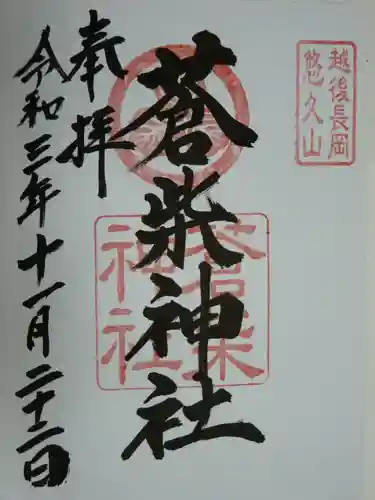 越後長岡
悠久山
奉拝
蒼柴神社
蒼柴
神社
令和三年十一月二十二日